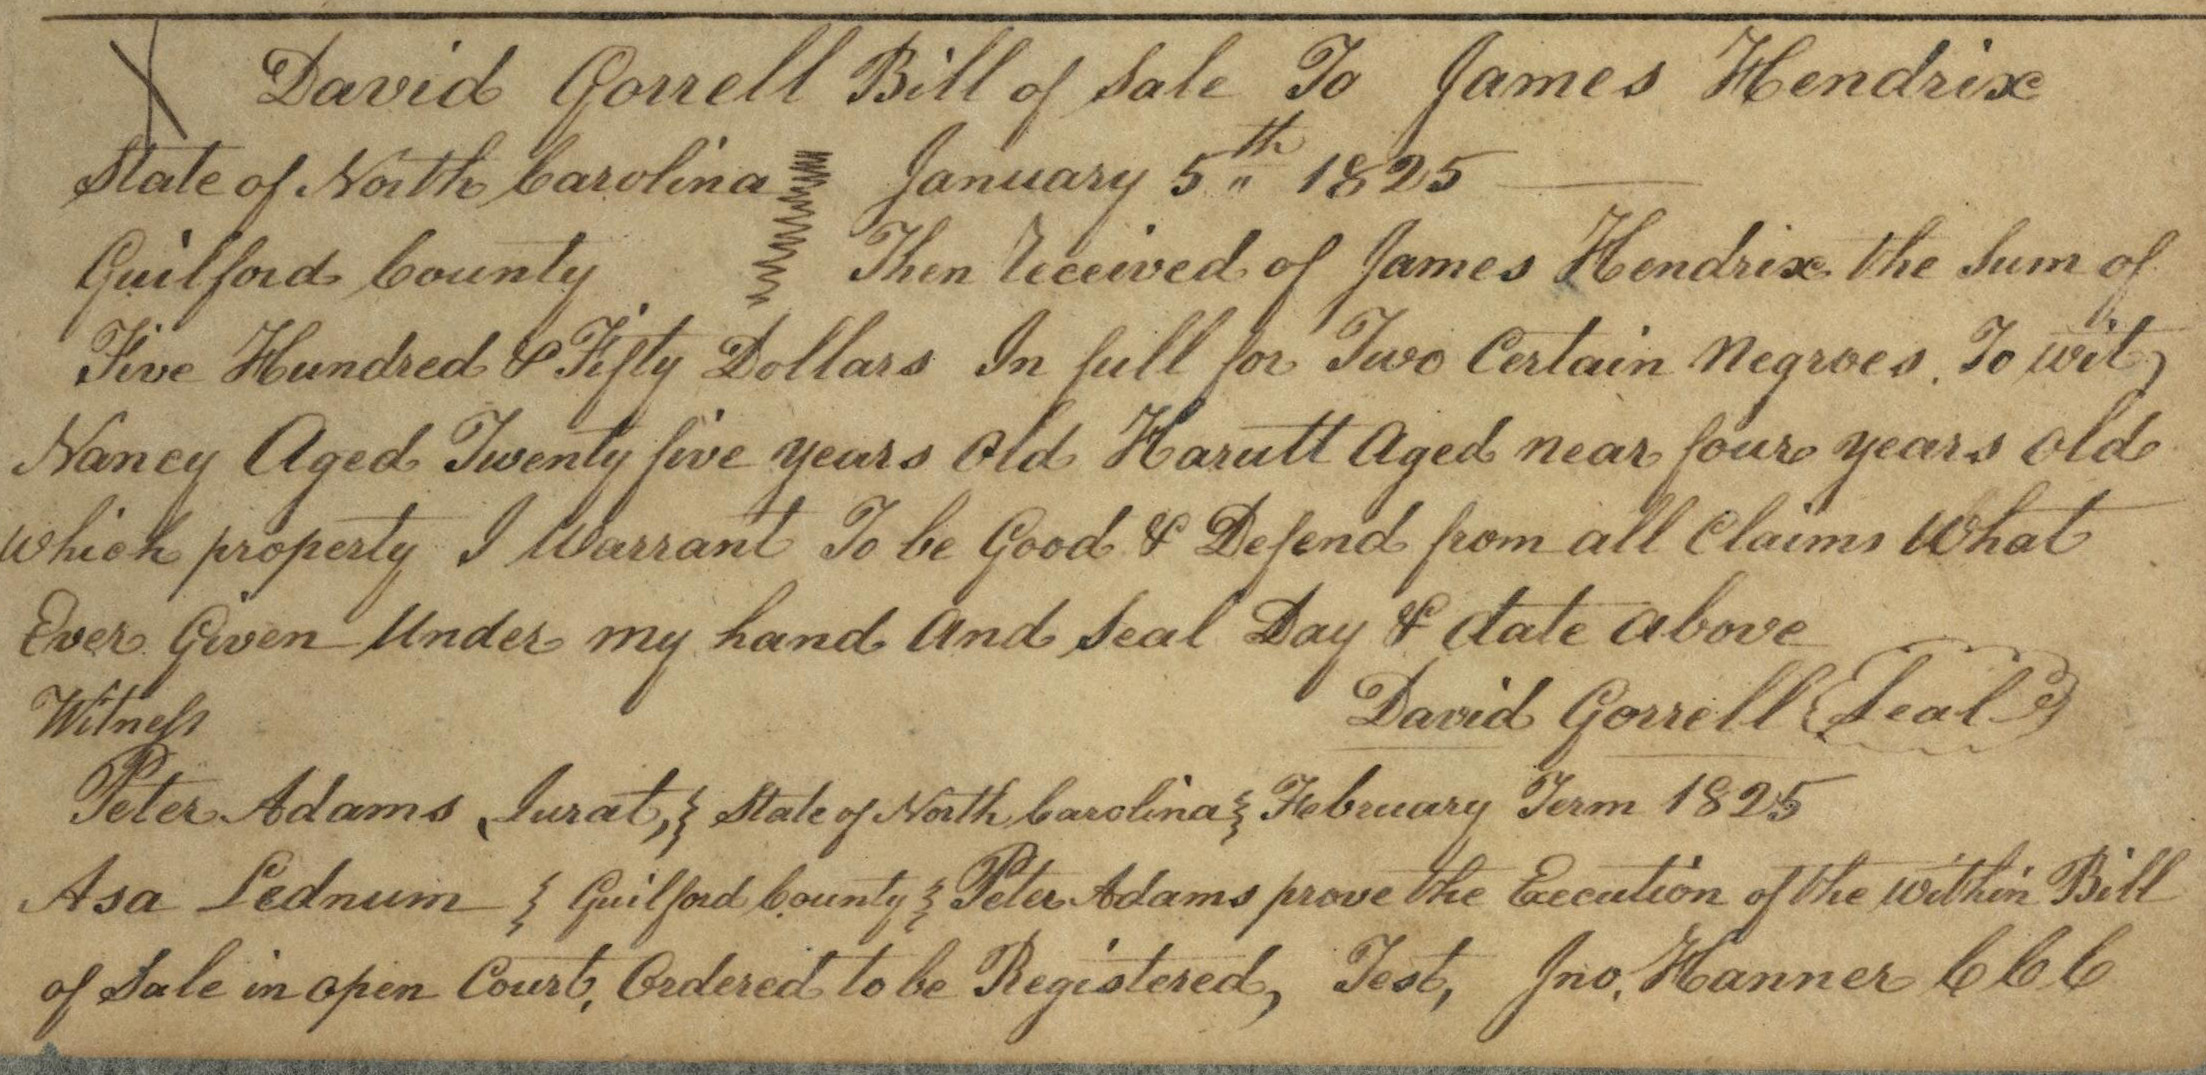 David Gorrell Bill of Sale To James Hendrix
State of North Carolina January 5th 1825
Guilford County Then Received of James Hendrix the Sum of
Five Hundred & Fifty Dollars In full for Two Certain Negroes, To wit,
Nancy Aged Twenty five years old Harutt Aged near four years old
which property I Warrant To be Good & Defend from all Claims What
Ever Given Under my hand And Seal Day & date above
Witness David Gorrell Seal
Peter Adams Jurat, State of North Carolina February Term 1825
Asa Lednum Guilford County Peter Adams prove the Execution of the within Bill
of Sale in open Court, Ordered to be Registered, Test, Jno. Hanner CCC